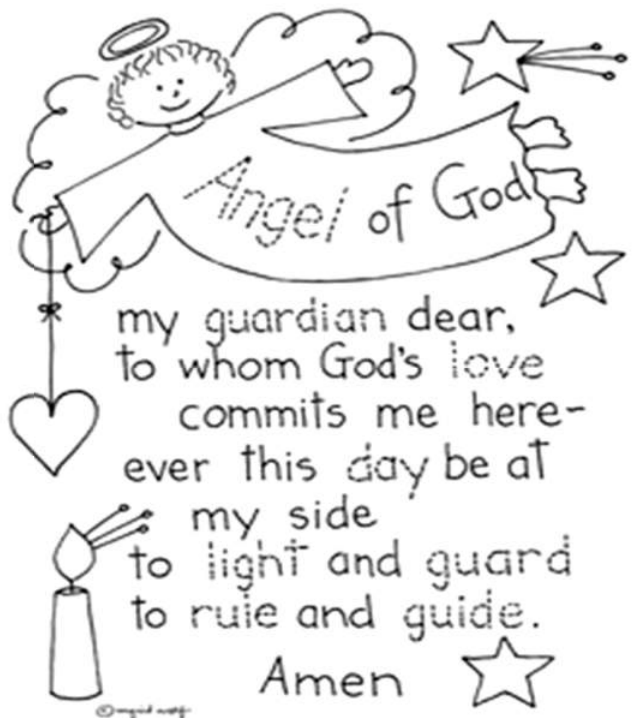 Angel of God
my guardian dear,
to whom God's love
commits me here-
ever this day be at
my side
to light and guard
to rule and guide.
Amen